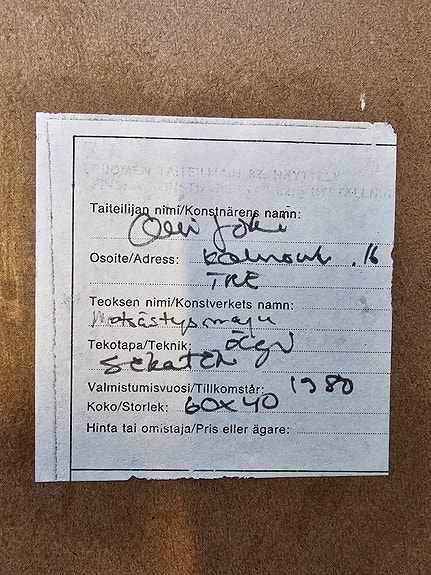 SUOMEN TAITEILIJAIN 82. NÄYTTELY
Taiteilijan nimi/Konstnärens namn:
Olli Joki
Osoite/Address: 16
TRE
Teoksen nimi/Konstverkets namn:
Metsästysmaja
Tekotapa/Teknik:
sekatek
Valmistumisvuosi/Tillkomstår: 1980
Koko/Storlek: 60x40
Hinta tai omistaja/Pris eller ägare: